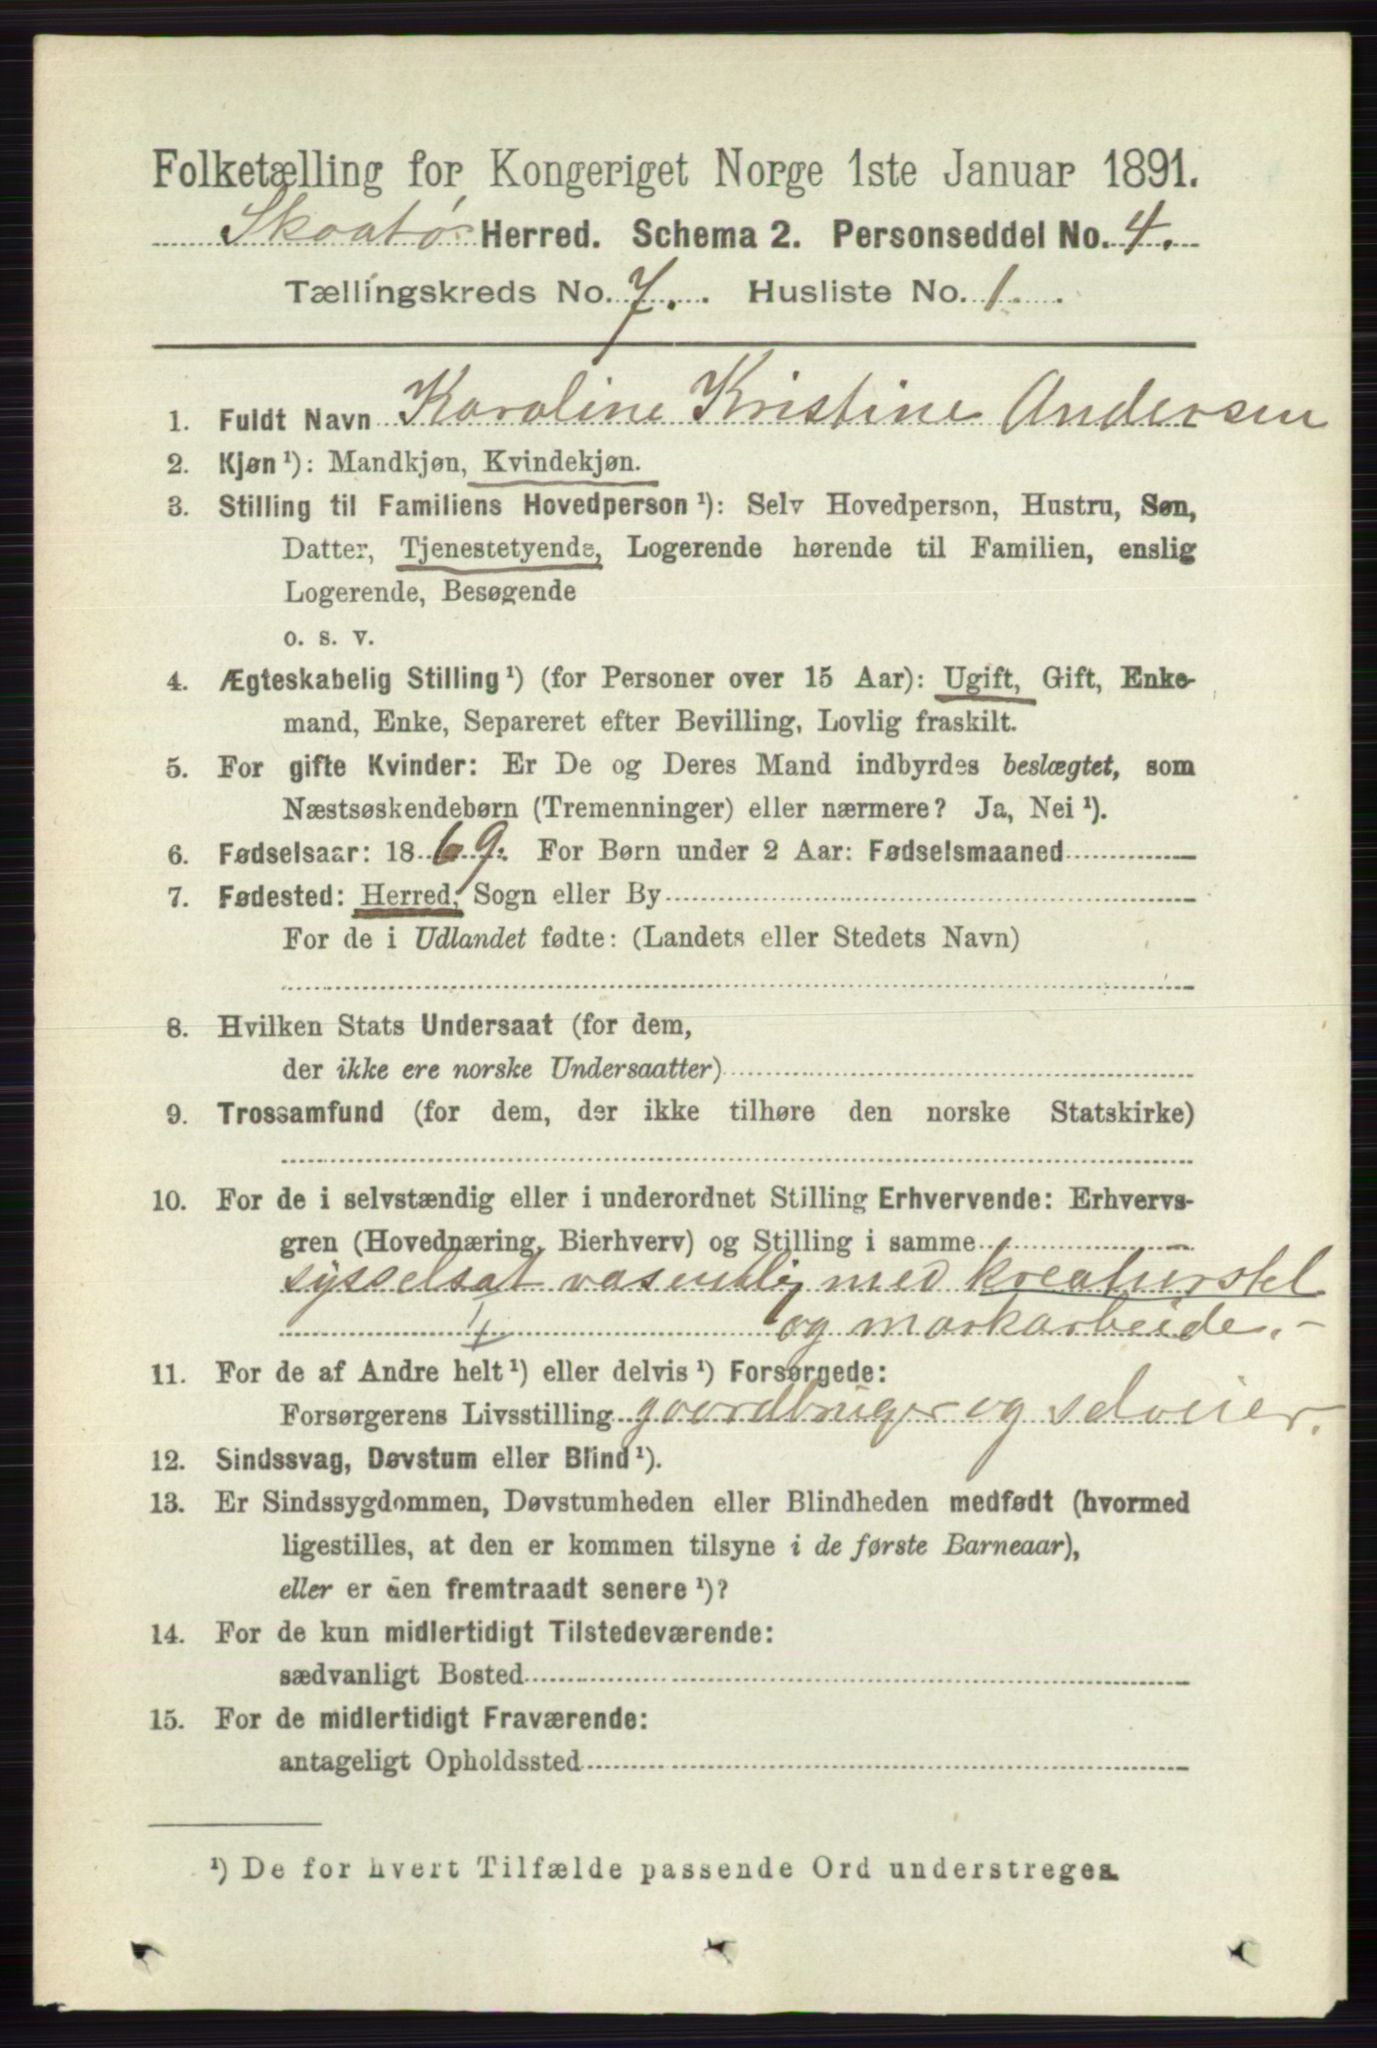 Folketælling for Kongeriget Norge 1ste Januar 1891.
Skaatø Herred. Schema 2. Personseddel No. 4.
Tællingskreds No. 7. Husliste No. 1.
1. Fuldt Navn Karoline Kristine Andersen
2. Kjøn ¹): Mandkjøn, Kvindekjøn.
3. Stilling til Familiens Hovedperson ¹): Selv Hovedperson, Hustru, Søn,
Datter, Tjenestetyende, Logerende hørende til Familien, enslig
Logerende, Besøgende
o. s. v.
4. Ægteskabelig Stilling ¹) (for Personer over 15 Aar): Ugift, Gift, Enke-
mand, Enke, Separeret efter Bevilling, Lovlig fraskilt.
5. For gifte Kvinder: Er De og Deres Mand indbyrdes beslægtet, som
Næstsøskendebørn (Tremenninger) eller nærmere? Ja, Nei ¹).
6. Fødselsaar: 1869. For Børn under 2 Aar: Fødselsmaaned
7. Fødested: Herred, Sogn eller By
For de i Udlandet fødte: (Landets eller Stedets Navn)
8. Hvilken Stats Undersaat (for dem,
der ikke ere norske Undersaatter)
9. Trossamfund (for dem, der ikke tilhøre den norske Statskirke)
10. For de i selvstændig eller i underordnet Stilling Erhvervende: Erhvervs-
gren (Hovednæring, Bierhverv) og Stilling i samme
sysselsat vasentlig med kreaturstel
og markarbeide. -
11. For de af Andre helt ¹) eller delvis ¹) Forsørgede:
Forsørgerens Livsstilling gaardbruger og selveier.
12. Sindssvag, Døvstum eller Blind ¹).
13. Er Sindssygdommen, Døvstumheden eller Blindheden medfødt (hvormed
ligestilles, at den er kommen tilsyne i de første Barneaar),
eller er den fremtraadt senere ¹)?
14. For de kun midlertidigt Tilstedeværende:
sædvanligt Bosted
15. For de midlertidigt Fraværende:
antageligt Opholdssted
¹) De for hvert Tilfælde passende Ord understreges.